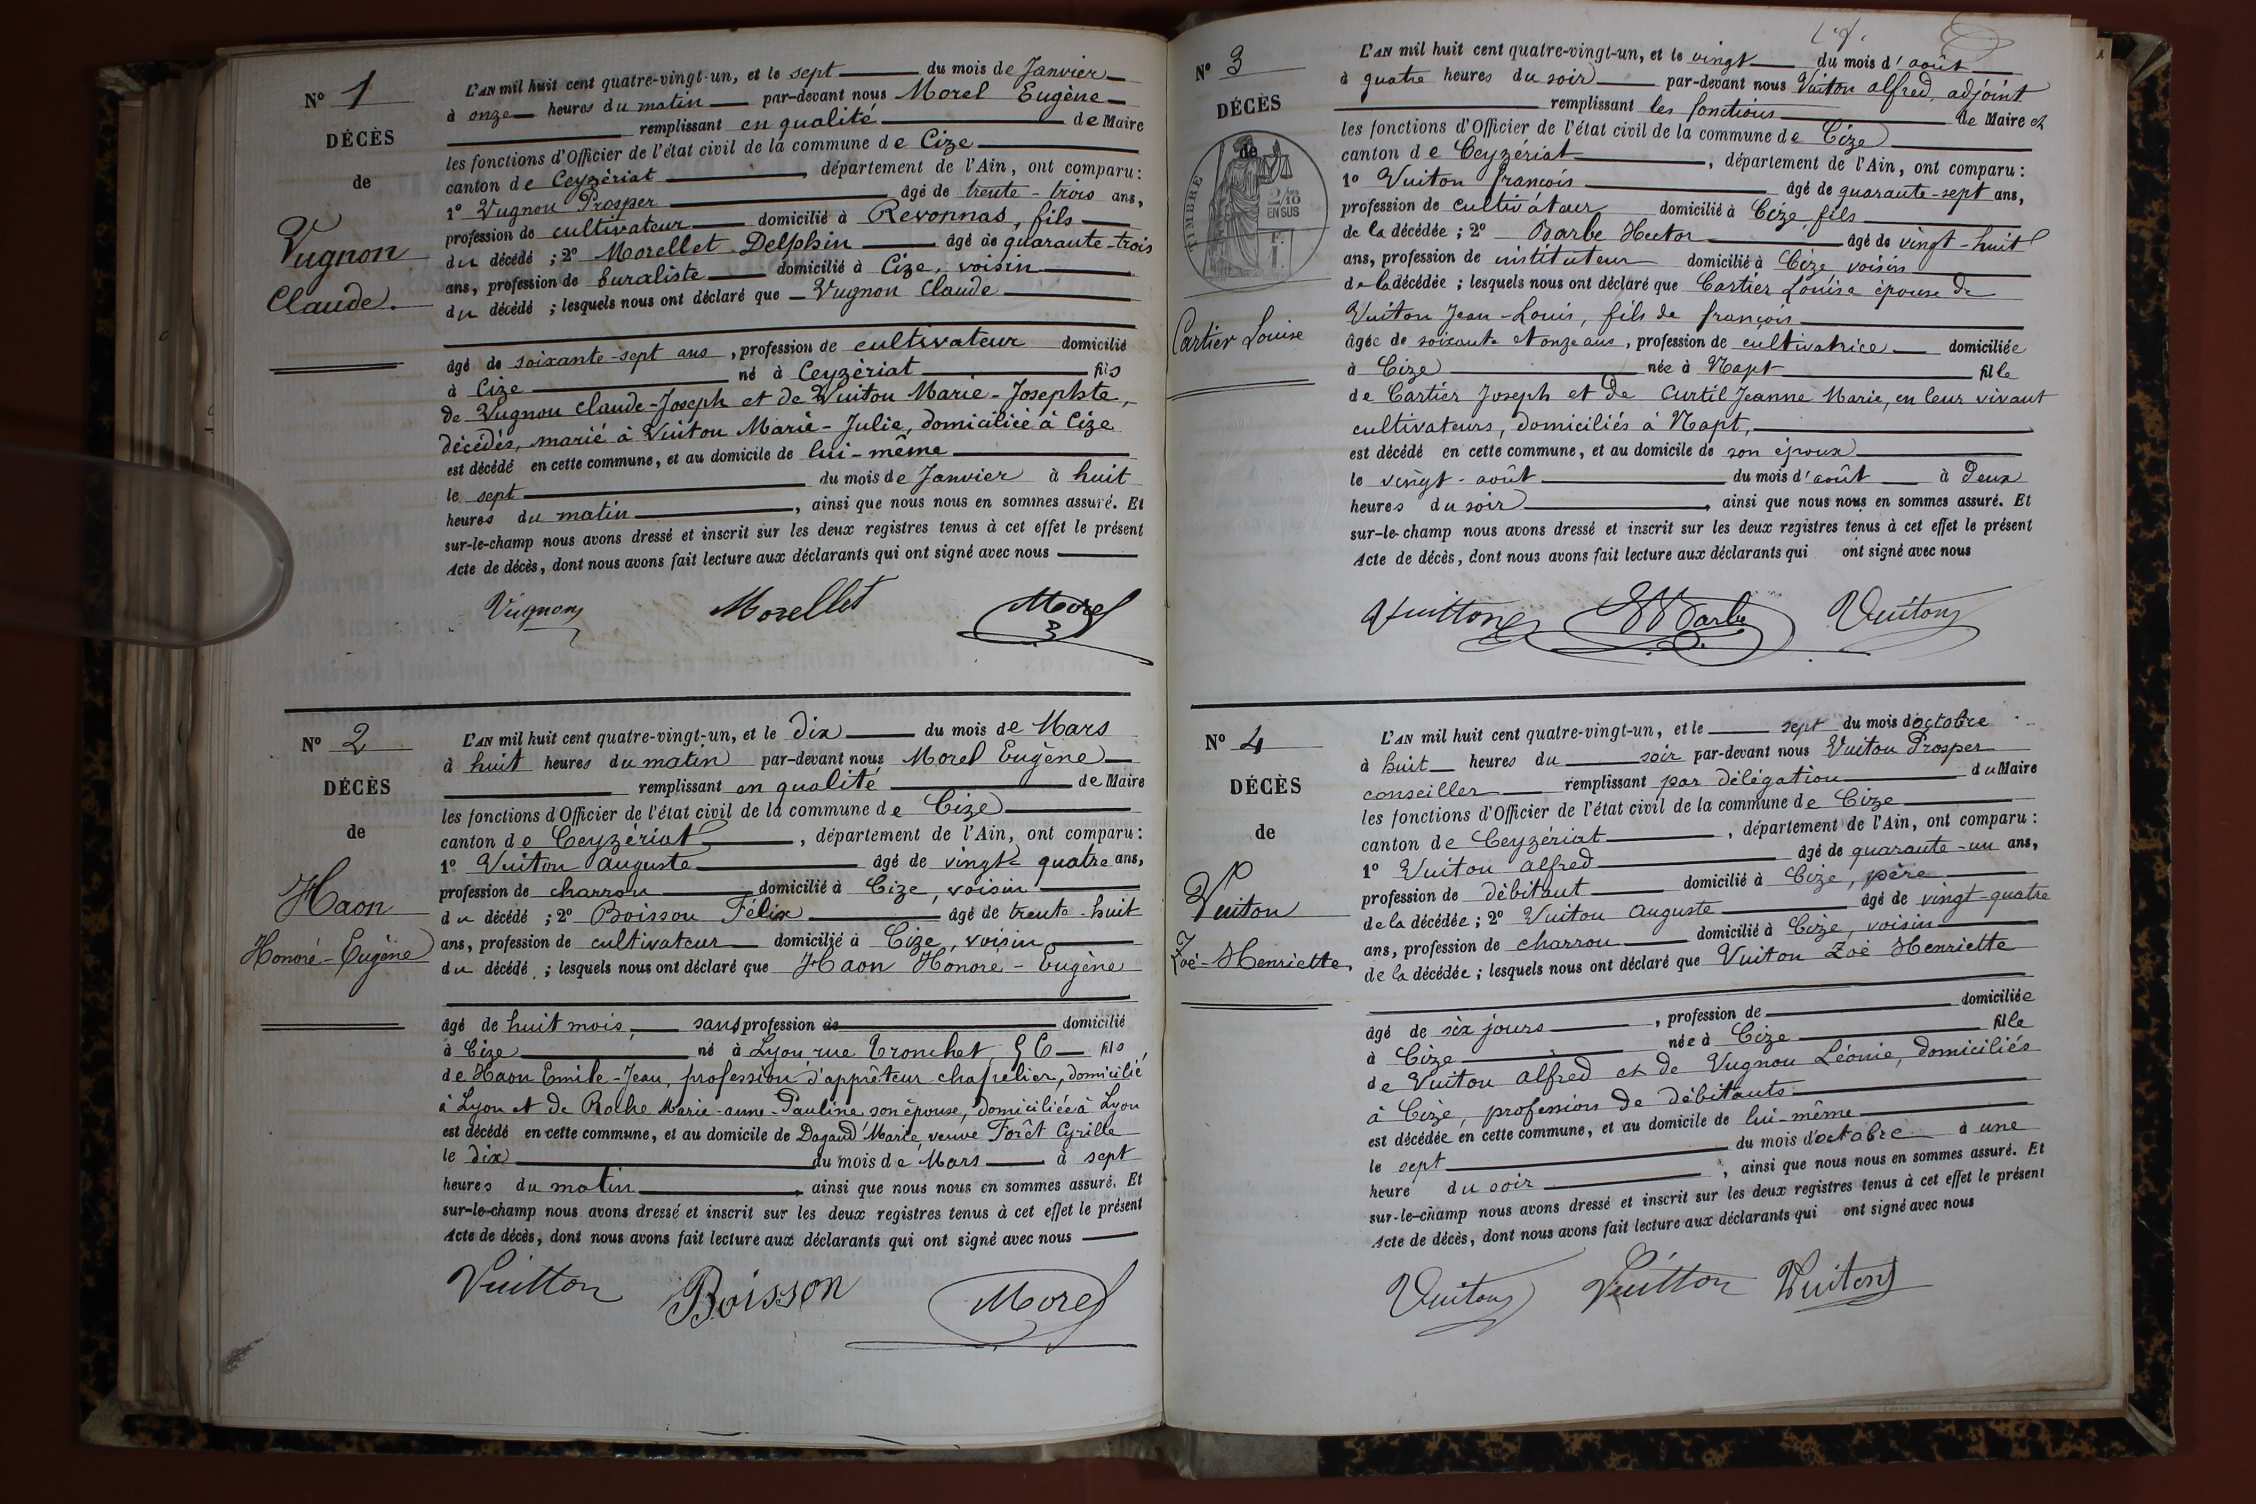 N° 1
DÉCÈS
de
Vugnon
Claude.
L'AN mil huit cent quatre-vingt-un, et le sept du mois de Janvier
à onze heures du matin par-devant nous Morel Eugène
remplissant en qualité de Maire
les fonctions d'Officier de l'état civil de la commune de Cize
canton de Ceyzériat, département de l'Ain, ont comparu :
1° Vugnon Prosper âgé de trente-trois ans,
profession de cultivateur domicilié à Revonnas, fils
du décédé ; 2° Morellet Delphin âgé de quarante-trois
ans, profession de buraliste domicilié à Cize, voisin
du décédé ; lesquels nous ont déclaré que Vugnon Claude
âgé de soixante-sept ans, profession de cultivateur domicilié
à Cize né à Ceyzériat fils
de Vugnon Claude-Joseph et de Vuiton Marie-Josephte,
décédés, marié à Vuiton Marie-Julie, domiciliée à Cize
est décédé en cette commune, et au domicile de lui-même
le sept du mois de Janvier à huit
heures du matin, ainsi que nous nous en sommes assuré. Et
sur-le-champ nous avons dressé et inscrit sur les deux registres tenus à cet effet le présent
Acte de décès, dont nous avons fait lecture aux déclarants qui ont signé avec nous
Vugnon Morellet Morel
N° 2
DÉCÈS
de
Haon
Honoré-Eugène
L'AN mil huit cent quatre-vingt-un, et le dix du mois de Mars
à huit heures du matin par-devant nous Morel Eugène
remplissant en qualité de Maire
les fonctions d'Officier de l'état civil de la commune de Cize
canton de Ceyzériat, département de l'Ain, ont comparu :
1° Vuiton Auguste âgé de vingt-quatre ans,
profession de charron domicilié à Cize, voisin
du décédé ; 2° Boisson Félix âgé de trente-huit
ans, profession de cultivateur domicilié à Cize, voisin
du décédé ; lesquels nous ont déclaré que Haon Honoré-Eugène
âgé de huit mois, sans profession de domicilié
à Cize né à Lyon, rue Tronchet, fils
de Haon Emile-Jean, profession d'apprêteur chapelier, domicilié
à Lyon et de Rolhe Marie-anne-Pauline son épouse, domiciliée à Lyon
est décédé en cette commune, et au domicile de Dagaud Marie, veuve Forêt Cyrille
le dix du mois de Mars à sept
heures du matin, ainsi que nous nous en sommes assuré. Et
sur-le-champ nous avons dressé et inscrit sur les deux registres tenus à cet effet le présent
Acte de décès, dont nous avons fait lecture aux déclarants qui ont signé avec nous
Vuitton Boisson Morel
N° 3
DÉCÈS
de
TIMBRE
2/10
EN SUS
Cartier Louise
L'AN mil huit cent quatre-vingt-un, et le vingt du mois d'août
à quatre heures du soir par-devant nous Vuiton alfred, adjoint
remplissant les fonctions de Maire et
les fonctions d'Officier de l'état civil de la commune de Cize
canton de Ceyzériat, département de l'Ain, ont comparu :
1° Vuiton françois âgé de quarante-sept ans,
profession de cultivateur domicilié à Cize, fils
de la décédée ; 2° Barbe Hector âgé de vingt-huit
ans, profession de instituteur domicilié à Cize voisin
de la décédée ; lesquels nous ont déclaré que Cartier Louise épouse de
Vuiton Jean-Louis, fils de françois
âgée de soixante et onze ans, profession de cultivatrice domiciliée
à Cize née à Napt fille
de Cartier Joseph et de Curtil Jeanne Marie, en leur vivant
cultivateurs, domiciliés à Napt,
est décédé en cette commune, et au domicile de son époux
le vingt-août du mois d'août à deux
heures du soir, ainsi que nous nous en sommes assuré. Et
sur-le-champ nous avons dressé et inscrit sur les deux registres tenus à cet effet le présent
Acte de décès, dont nous avons fait lecture aux déclarants qui ont signé avec nous
Vuitton Barbe Vuiton
N° 4
DÉCÈS
de
Vuiton
Zoé-Henriette,
L'AN mil huit cent quatre-vingt-un, et le sept du mois d'octobre
à huit heures du soir par-devant nous Vuiton Prosper
conseiller remplissant par délégation du Maire
les fonctions d'Officier de l'état civil de la commune de Cize
canton de Ceyzériat, département de l'Ain, ont comparu :
1° Vuiton alfred âgé de quarante-un ans,
profession de débitant domicilié à Cize, père
de la décédée ; 2° Vuiton Auguste âgé de vingt-quatre
ans, profession de charron domicilié à Cize, voisin
de la décédée ; lesquels nous ont déclaré que Vuiton Zoé Henriette
âgé de six jours, profession de domiciliée
à Cize née à Cize fille
de Vuiton alfred et de Vugnon Léonie, domiciliés
à Cize, profession de débitants
est décédée en cette commune, et au domicile de lui-même
le sept du mois d'octobre à une
heure du soir, ainsi que nous nous en sommes assuré. Et
sur-le-champ nous avons dressé et inscrit sur les deux registres tenus à cet effet le présent
Acte de décès, dont nous avons fait lecture aux déclarants qui ont signé avec nous
Vuiton Vuitton Vuiton